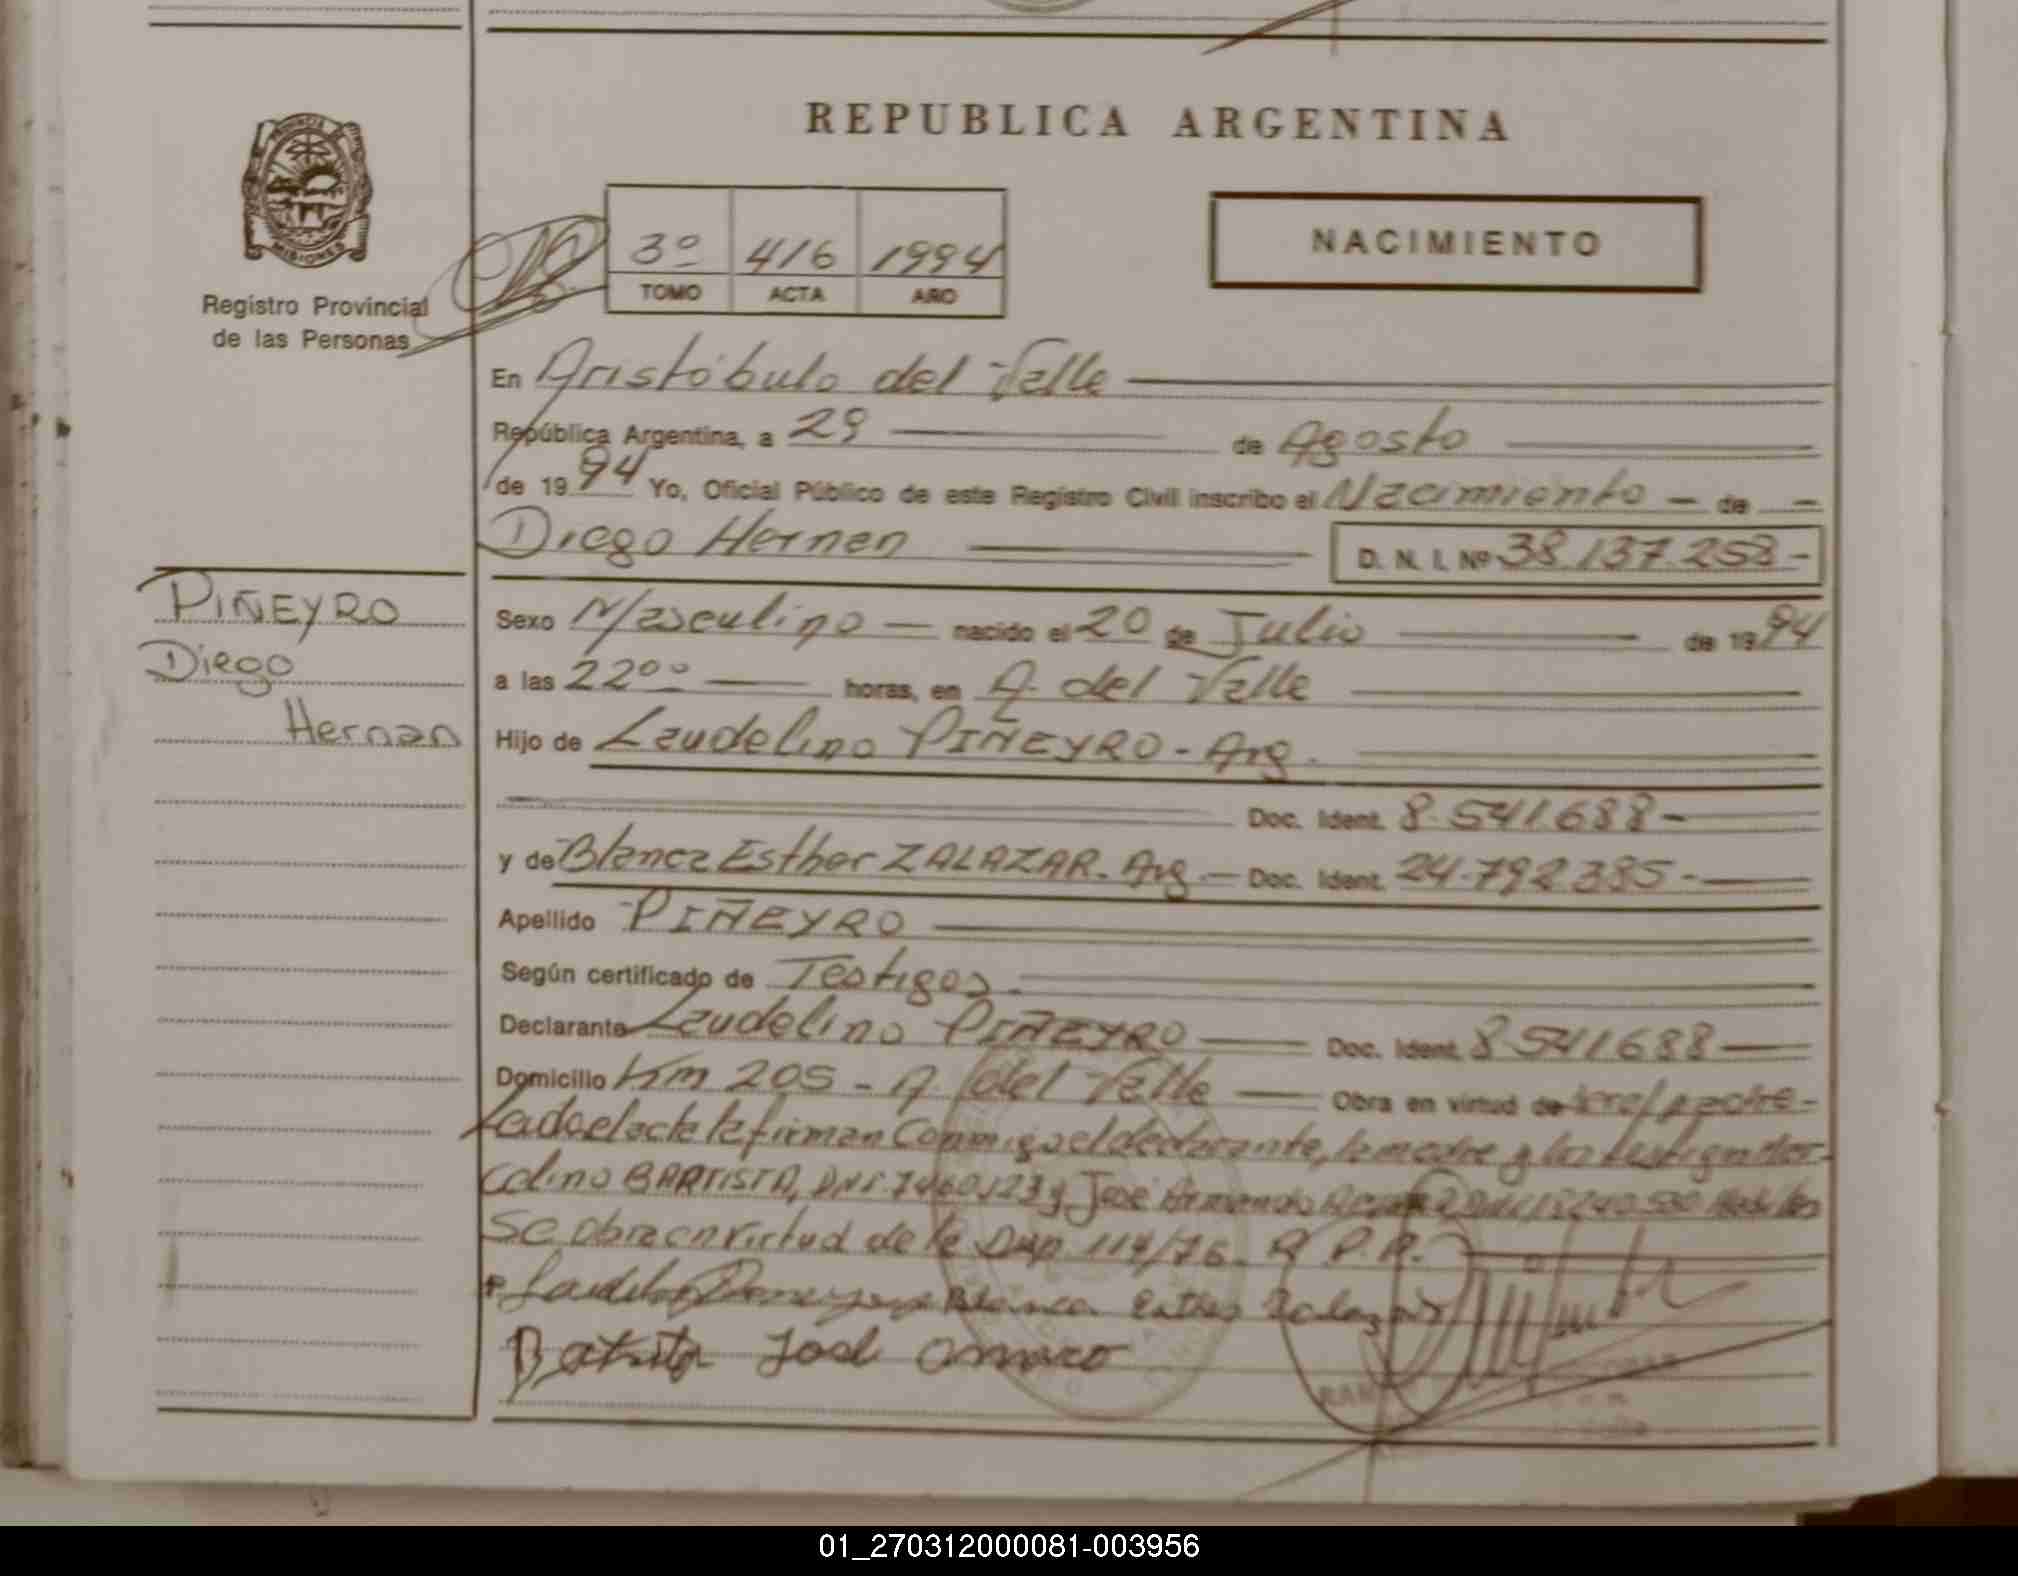 REPUBLICA ARGENTINA
PROVINCIA DE
MISIONES
Registro Provincial
de las Personas
3º 416 1994
TOMO ACTA AÑO
NACIMIENTO
En Aristóbulo del Valle
República Argentina, a 29 de Agosto
de 1994 Yo, Oficial Público de este Registro Civil inscribo el Nacimiento - de -
Diego Hernan D. N. I. Nº 38.137.258-
PIÑEYRO
Diego
Hernan
Sexo Masculino - nacido el 20 de Julio de 1994
a las 22ºº horas, en A. del Valle
Hijo de Laudelino PIÑEYRO - Arg.
Doc. Ident. 8.541.688-
y de Blanca Esther ZALAZAR. Arg. - Doc. Ident. 24.792.385-
Apellido PIÑEYRO
Según certificado de Testigos.
Declarante Laudelino PIÑEYRO Doc. Ident. 8.541.688
Domicilio Km 205 - A. del Valle Obra en virtud de padre-
Leida el acta la firman Conmigo el declarante, la madre y los testigos Mar-
celino BAPTISTA, DNI 7.460.123 y José Armando
Se obra en virtud de la Disp. 114/76. R.P.P.
Blanca Esther Zalazar
José
RAM
01_270312000081-003956